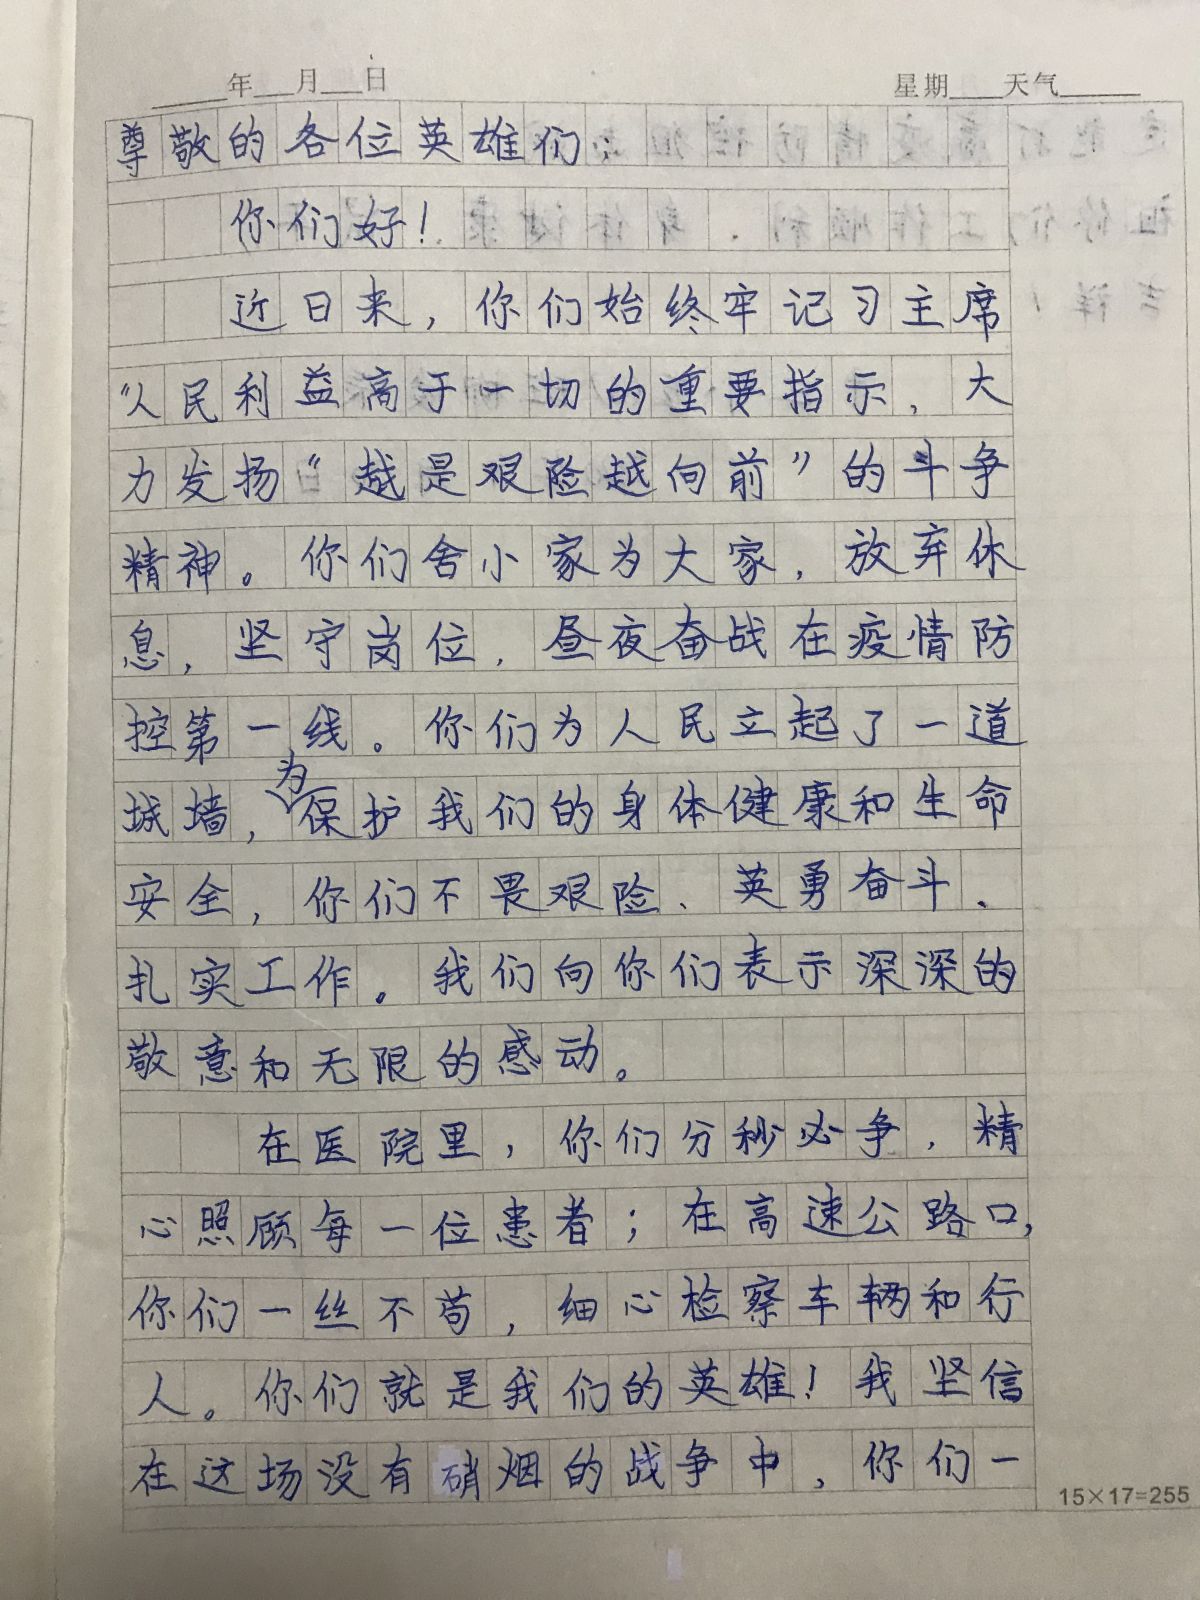 ____年___月___日 星期____天气______
尊敬的各位英雄们：
你们好！
近日来，你们始终牢记习主席
“人民利益高于一切的重要指示，大
力发扬“越是艰险越向前”的斗争
精神。你们舍小家为大家，放弃休
息，坚守岗位，昼夜奋战在疫情防
控第一线。你们为人民立起了一道
城墙，为保护我们的身体健康和生命
安全，你们不畏艰险、英勇奋斗、
扎实工作。我们向你们表示深深的
敬意和无限的感动。
在医院里，你们分秒必争，精
心照顾每一位患者；在高速公路口，
你们一丝不苟，细心检察车辆和行
人。你们就是我们的英雄！我坚信
在这场没有硝烟的战争中，你们一
15×17=255